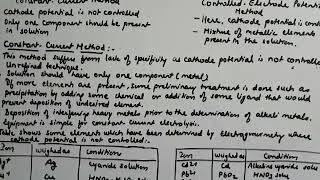 Constant-Current Method
Controlled-Electrode Potential
Method
cathode potential is not controlled
Only one component should be present
in solution
- Here, cathode potential is con
- Mixture of metallic elements
present in the solution.
Constant-Current Method:-
This method suffers from lack of specifity as cathode potential is not controlled
Unrefined technique.
Solution should have only one component (metal)
If more element are present, some preliminary treatment is done such as
precipitation by adding some chemical or addition of some ligand that would
prevent deposition of undesired element.
Deposition of interfering heavy metals prior to the determination of alkali metals.
Equipment is simple for constant current electrolysis.
Table shows some elements which have been determined by electrogravimetry where
cathode potential is not controlled:-
Ion Weighed as Condition
Ag Cyanide solution
Cu HNO3
Ion Weighed as Condition
Cd2+ Cd Alkaline cyanide solu
Pb2+ PbO2 HNO3 solu